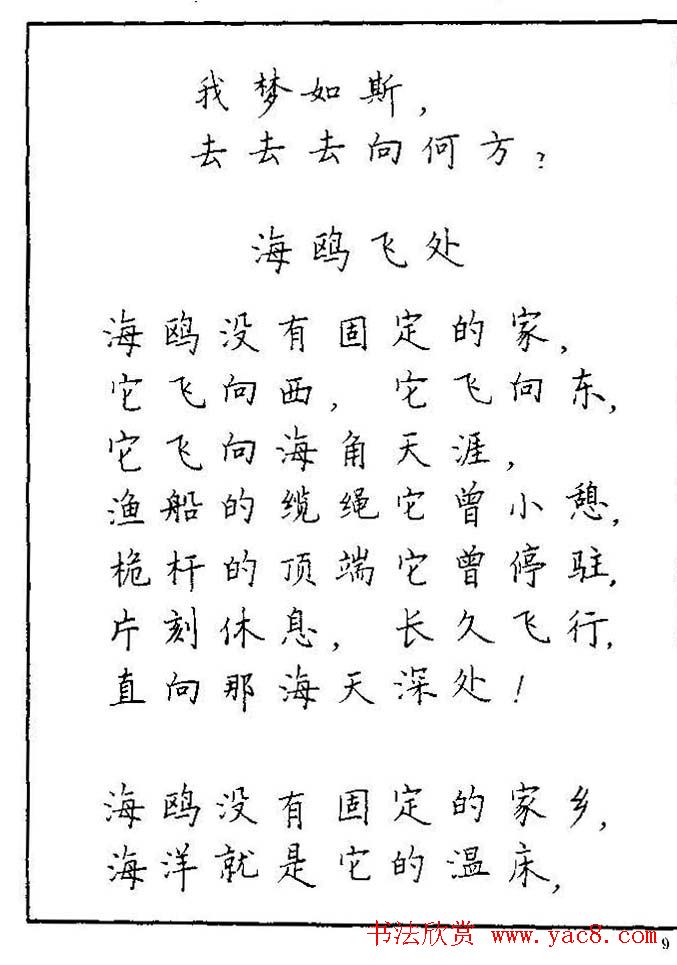 我梦如斯，
去去去向何方？
海鸥飞处
海鸥没有固定的家，
它飞向西，它飞向东，
它飞向海角天涯，
渔船的缆绳它曾小憩，
桅杆的顶端它曾停驻，
片刻休息，长久飞行，
直向那海天深处！
海鸥没有固定的家乡，
海洋就是它的温床，
书法欣赏 www.yac8.com 9